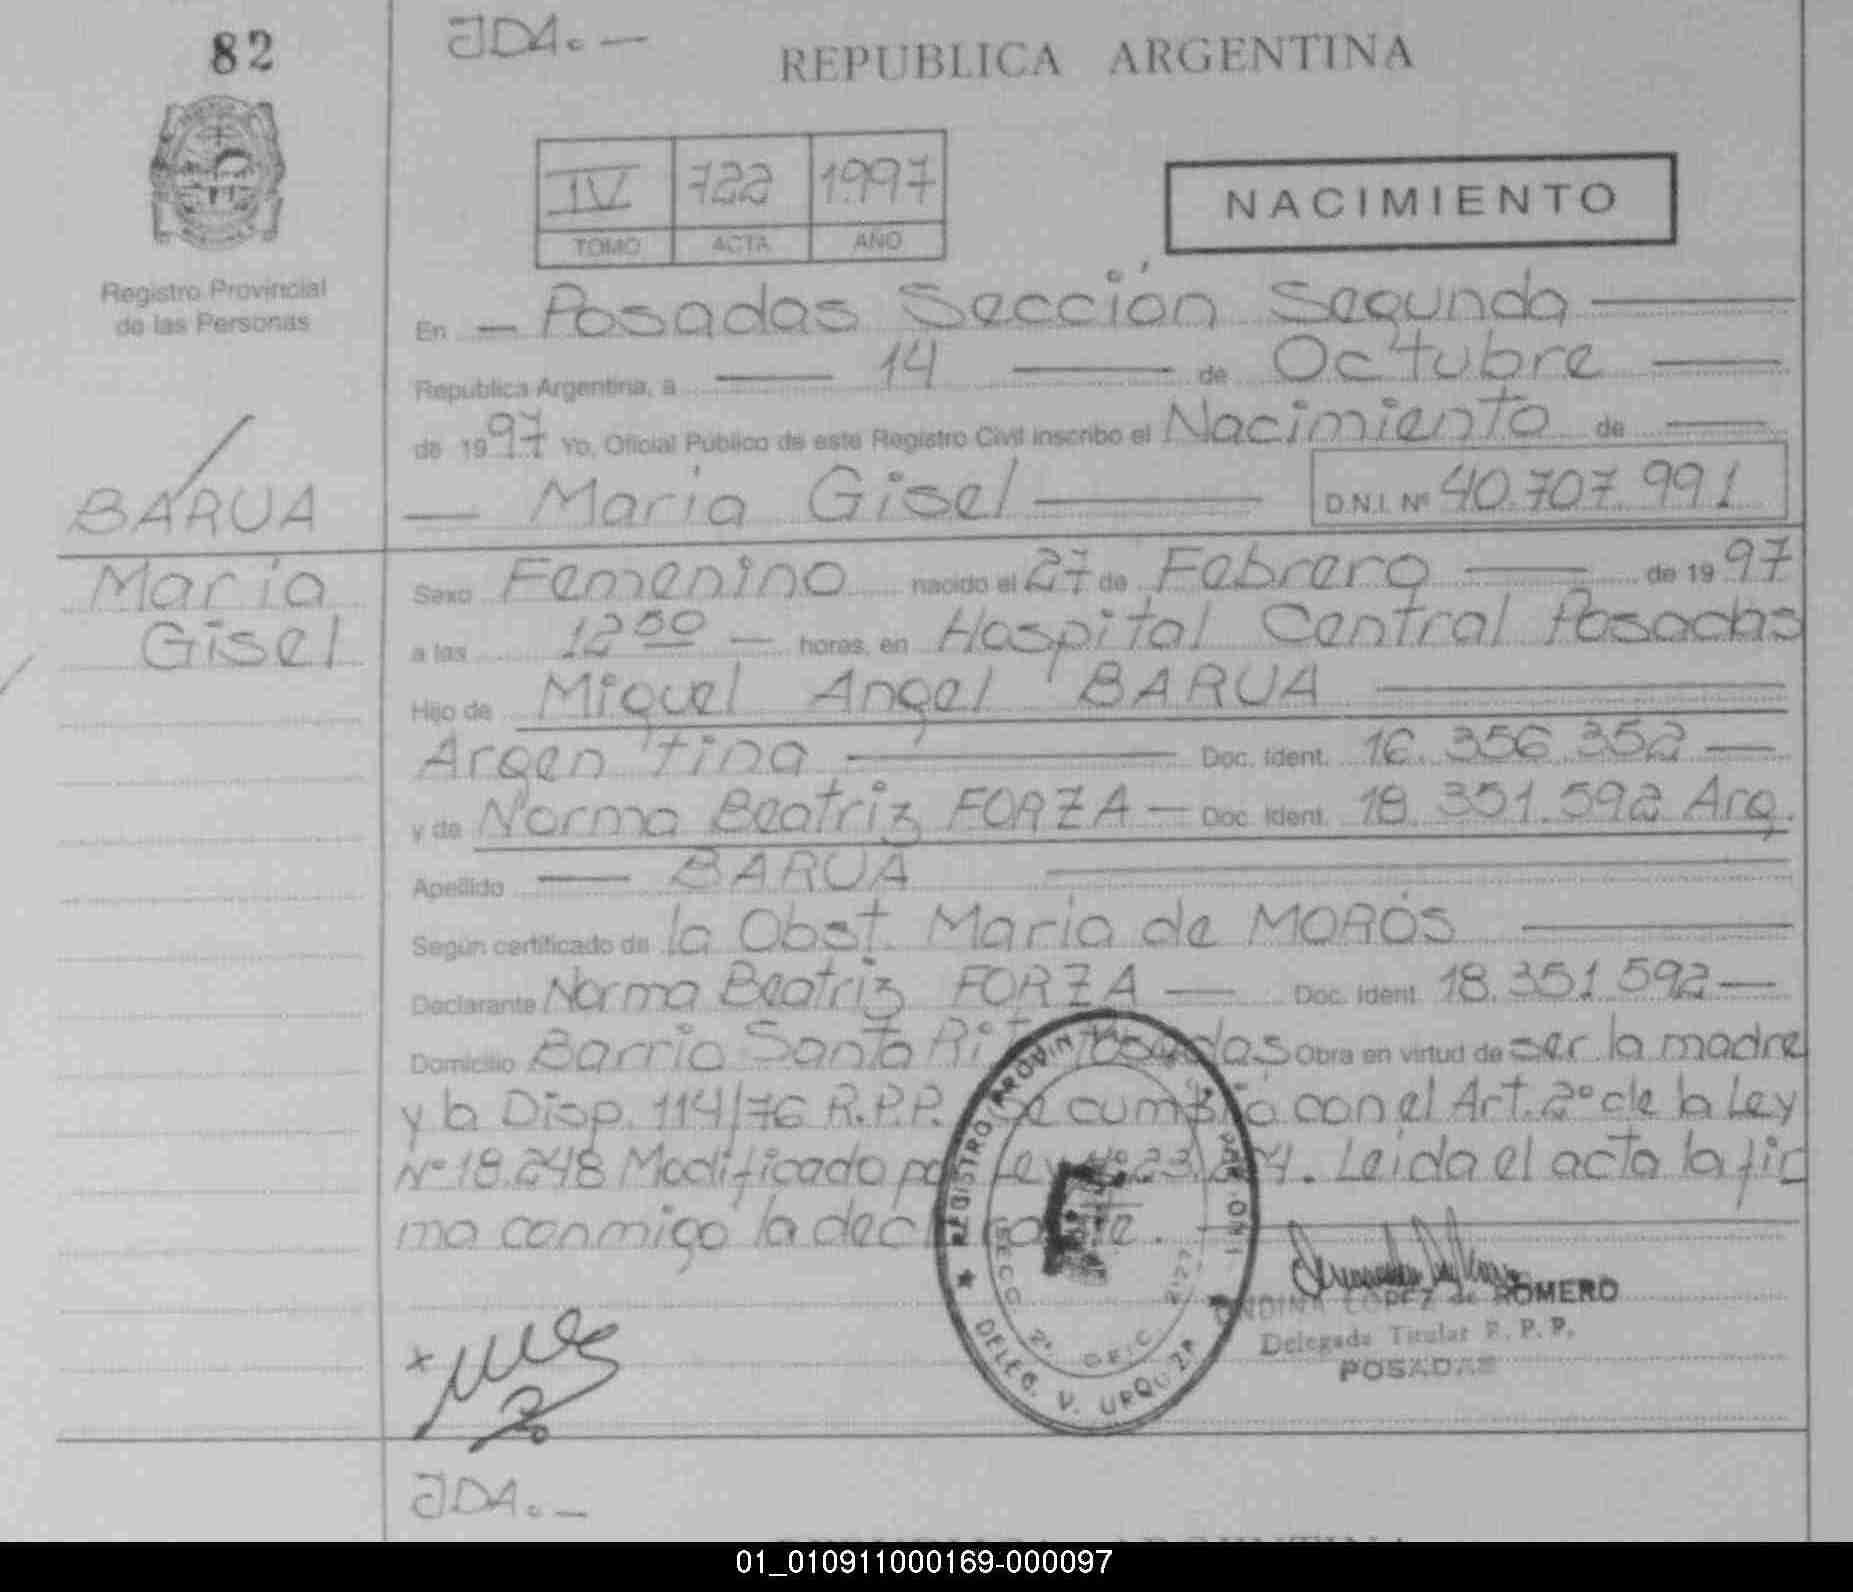 82
JDA. —
REPUBLICA ARGENTINA
IV 722 1997
TOMO ACTA AÑO
NACIMIENTO
Registro Provincial
de las Personas
En — Posadas Sección Segunda —
Republica Argentina, a — 14 — de Octubre —
de 1997 Yo, Oficial Público de este Registro Civil inscribo el Nacimiento de —
— María Gisel — D.N.I. Nº 40.707.991
BARUA
María
Gisel
Sexo Femenino nacido el 27 de Febrero — de 1997
a las 12 50 — horas, en Hospital Central Posadas
Hijo de Miguel Angel BARUA —
Argentina — Doc. Ident. 16.356.352 —
y de Norma Beatriz FORZA — Doc. Ident. 18.351.592 Arg.
Apellido — BARUA
Según certificado de la Obst. Maria de MOROS —
Declarante Norma Beatriz FORZA — Doc. Ident. 18.351.592 —
Domicilio Barrio Santa Rita Posadas Obra en virtud de ser la madre
y la Disp. 114/76 R.P.P. Se cumplió con el Art. 2º de la Ley
Nº 18.248 Modificado por Ley Nº 23. Leida el acta la fir
ma conmigo la declarante.
REGISTRO PROVIN
DELEG. V. URQUIZA
SECC 2ª OFIC
ONDINA LOPEZ de ROMERO
Delegada Titular R. P. P.
POSADAS
JDA. —
01_010911000169-000097